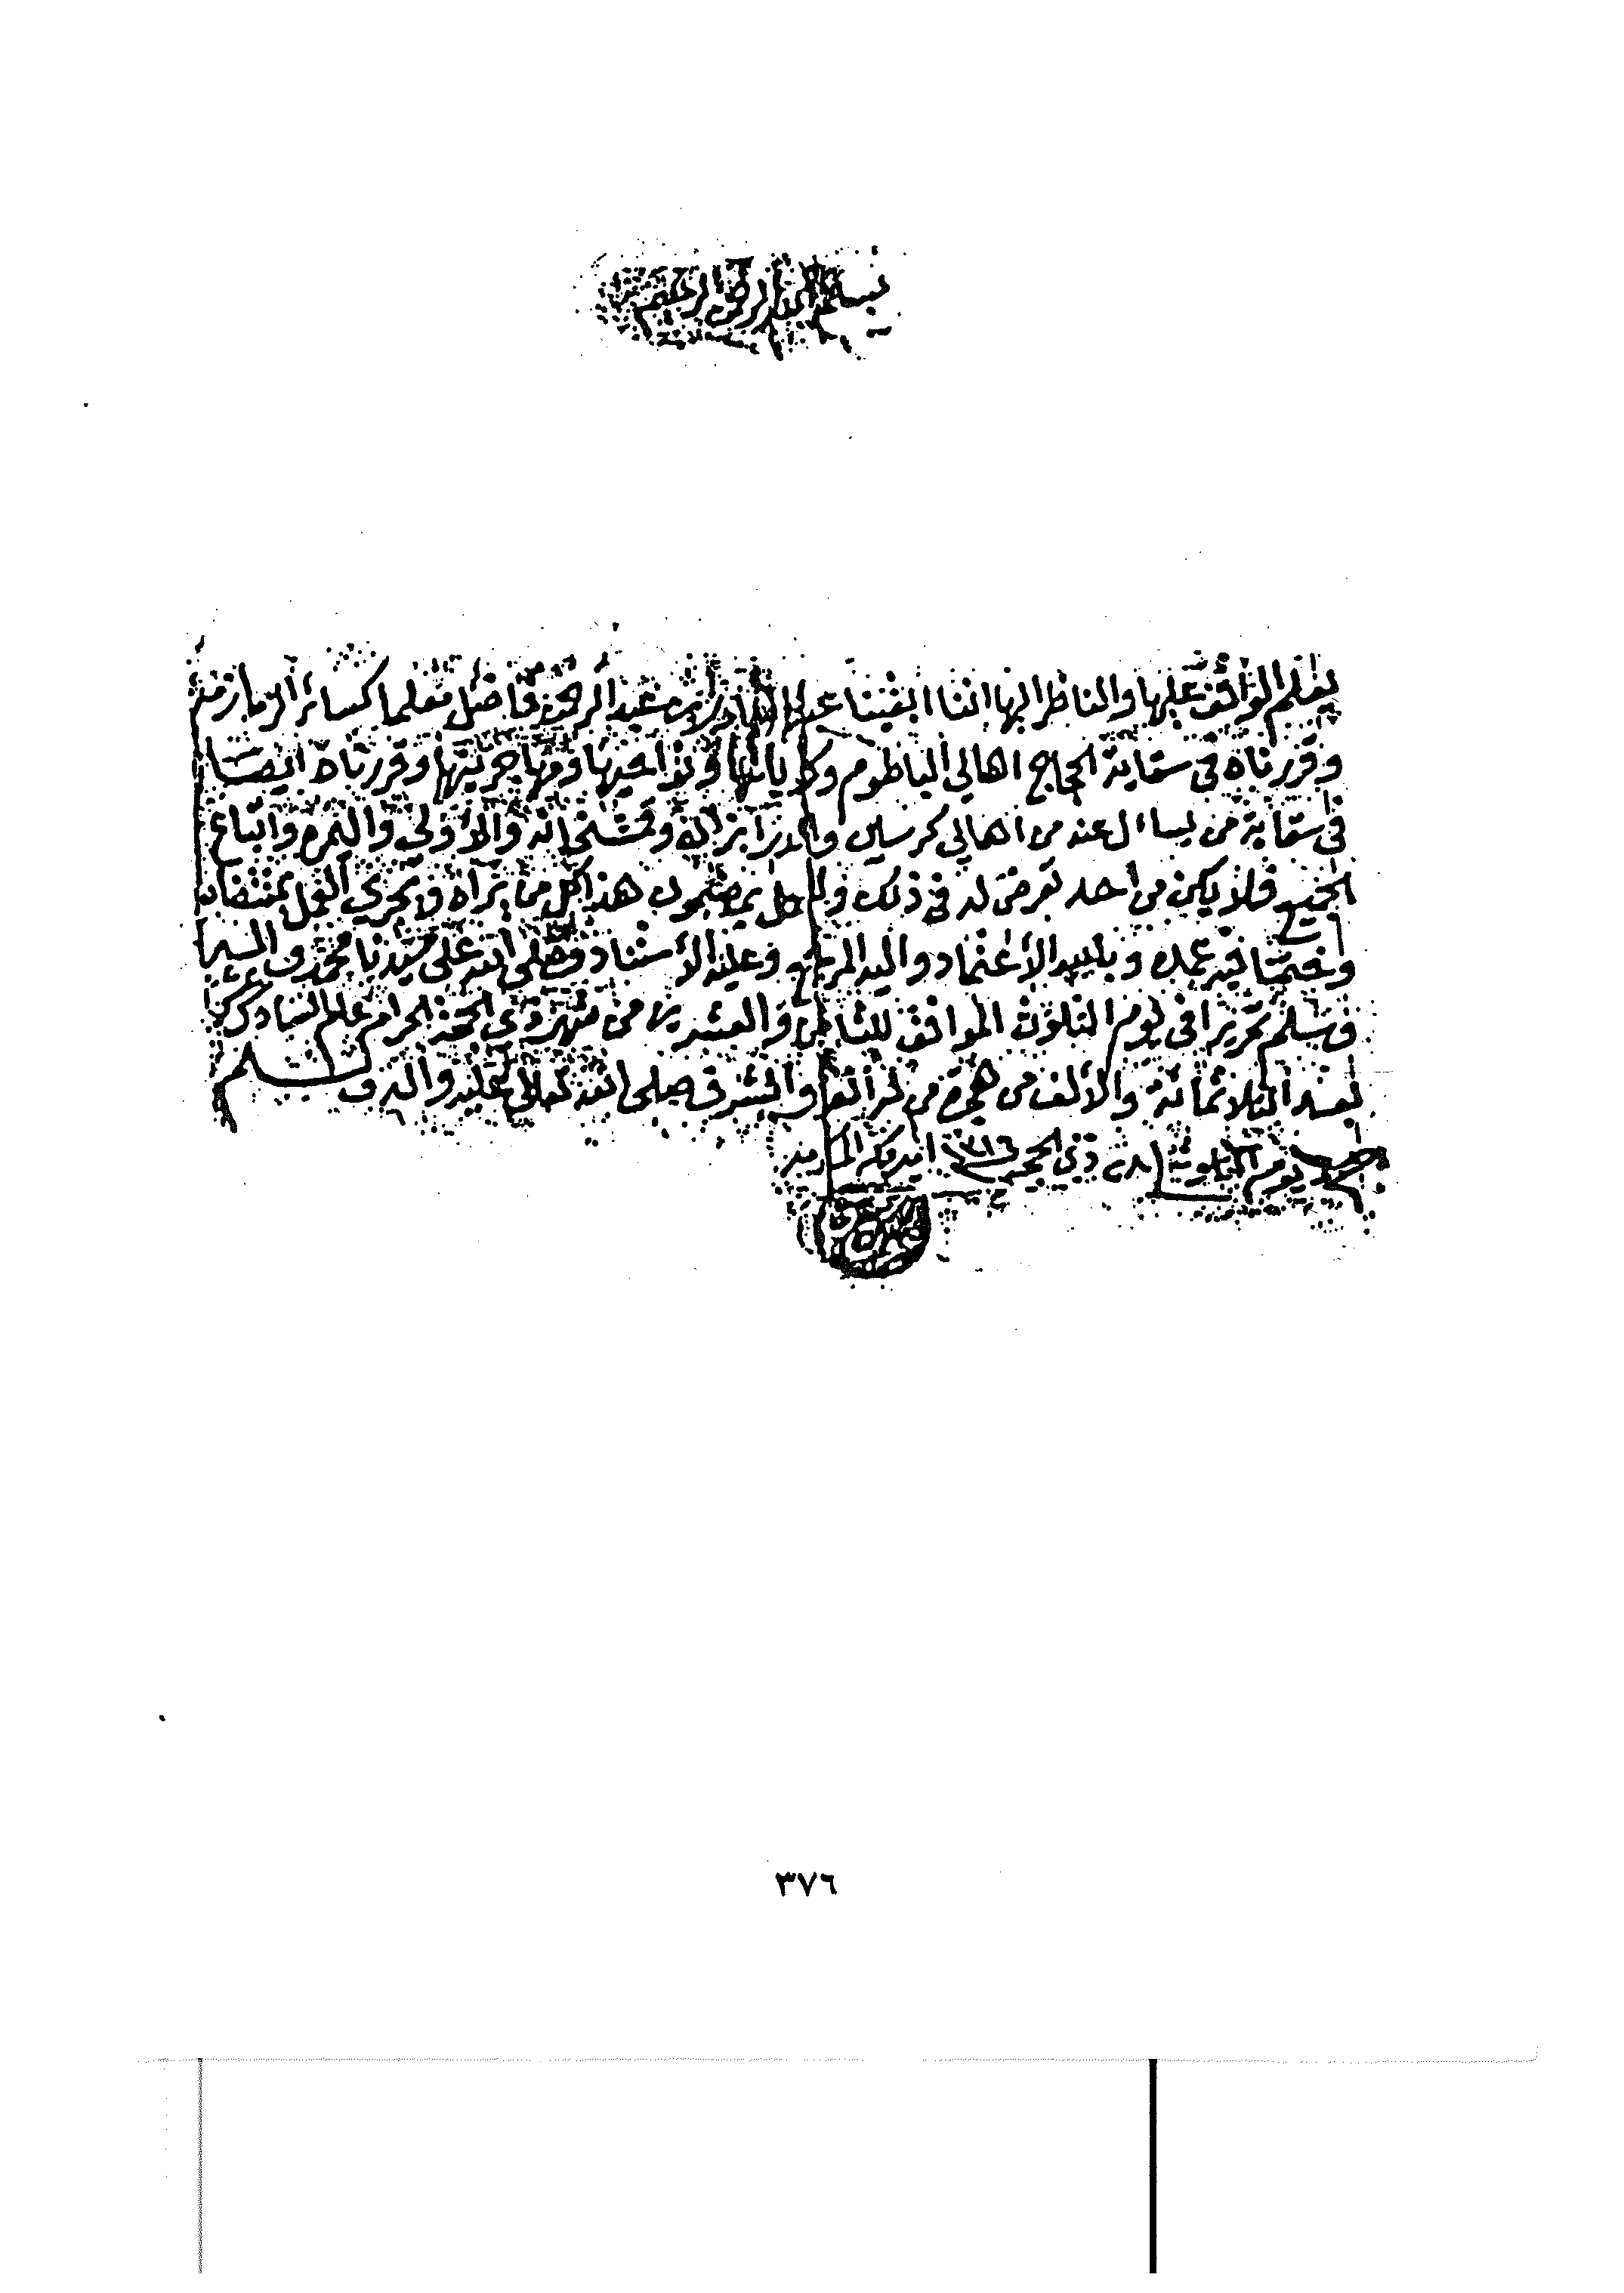 بسم الله الرحمن الرحيم
يعلم الواقف عليها والناظر اليها اننا ابقينا عبد القادر بن عبد الرحمن فاضل معلما كسائر الزمازمة
وقررناه في سقاية الحجاج اهالي الباطوم وكل يالتها ونواحيها ومهاجريتها وقررناه ايضا
في سقاية من يساءل عنه من اهالي كرسلي والدرابزالة وقمشخانة والأولى والنمرة واتباع
الجميع فلا يكن من أحد تعرض له في ذلك وللعمل بمضمون هذا كل من يراه ويجري العمل بمقتضاه
وختمنا فيه عمله وبالله الاعتماد واليه المرجع وعليه الأستناد وصلى الله على سيدنا محمد وآله
وسلم تحريرا في يوم الثلوث الموافق للثامن والعشرين من شهر ذي الحجة الحرام عام السادس عشر
بعد الثلاثمائة والألف من هجرة من له العز والشرف صلى الله تعالى عليه واله وسلم
يوم الثلوث ٢٨ ذي الحجة ١٣١٦ امير مكة المكرمة
٣٧٦